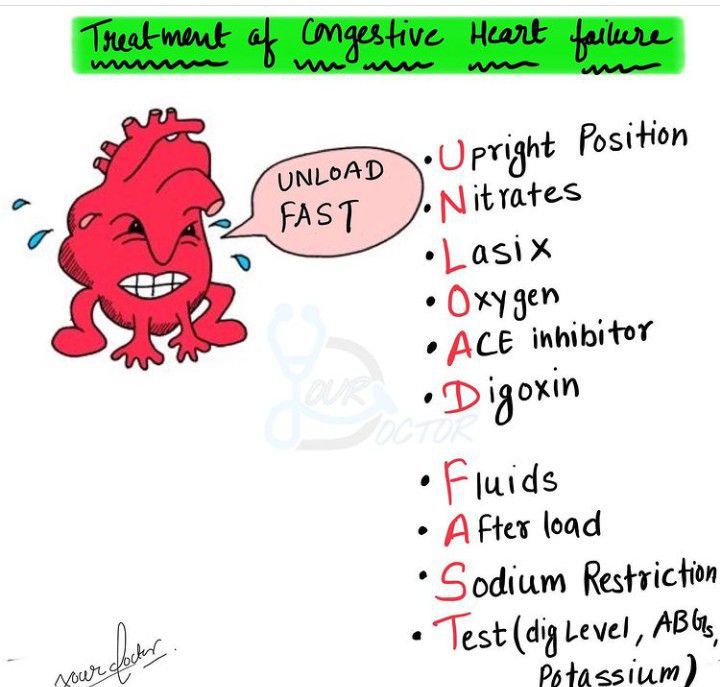 Treatment of Congestive Heart failure
UNLOAD
FAST
• Upright Position
• Nitrates
• Lasix
• Oxygen
• ACE inhibitor
• Digoxin
YOUR
DOCTOR
• Fluids
• After load
• Sodium Restriction
• Test (dig Level, ABGs,
Potassium)
your doctor.